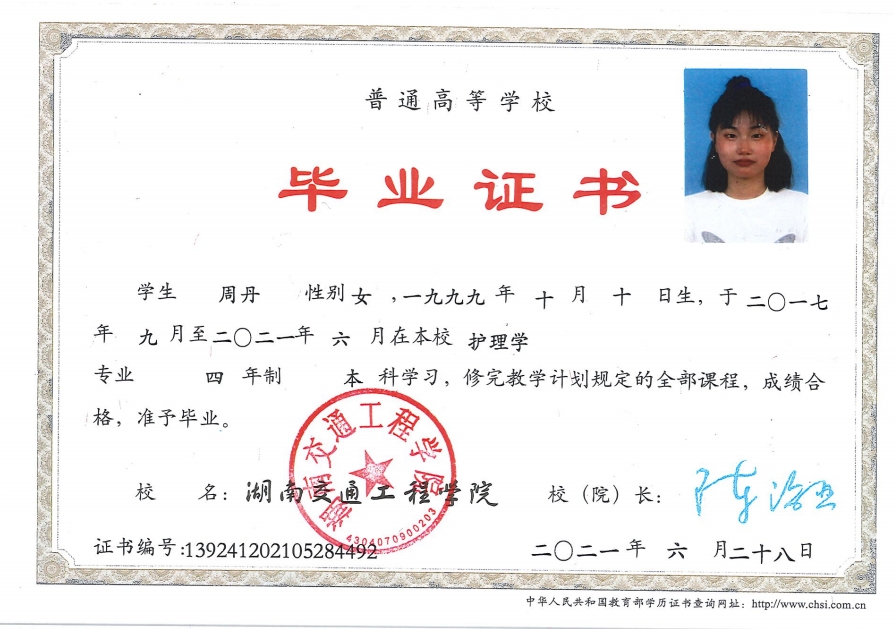 普通高等学校
毕业证书
学生 周丹 性别 女 ，一九九九 年 十 月 十 日生，于 二〇一七
年 九 月至 二〇二一 年 六 月在本校 护理学
专业 四 年制 本 科学习，修完教学计划规定的全部课程，成绩合
格，准予毕业。
湖南交通工程学院
4304070900203
校 名：湖南交通工程学院 校（院）长：
证书编号:139241202105284492 二〇二一 年 六 月 二十八 日
中华人民共和国教育部学历证书查询网址：http://www.chsi.com.cn